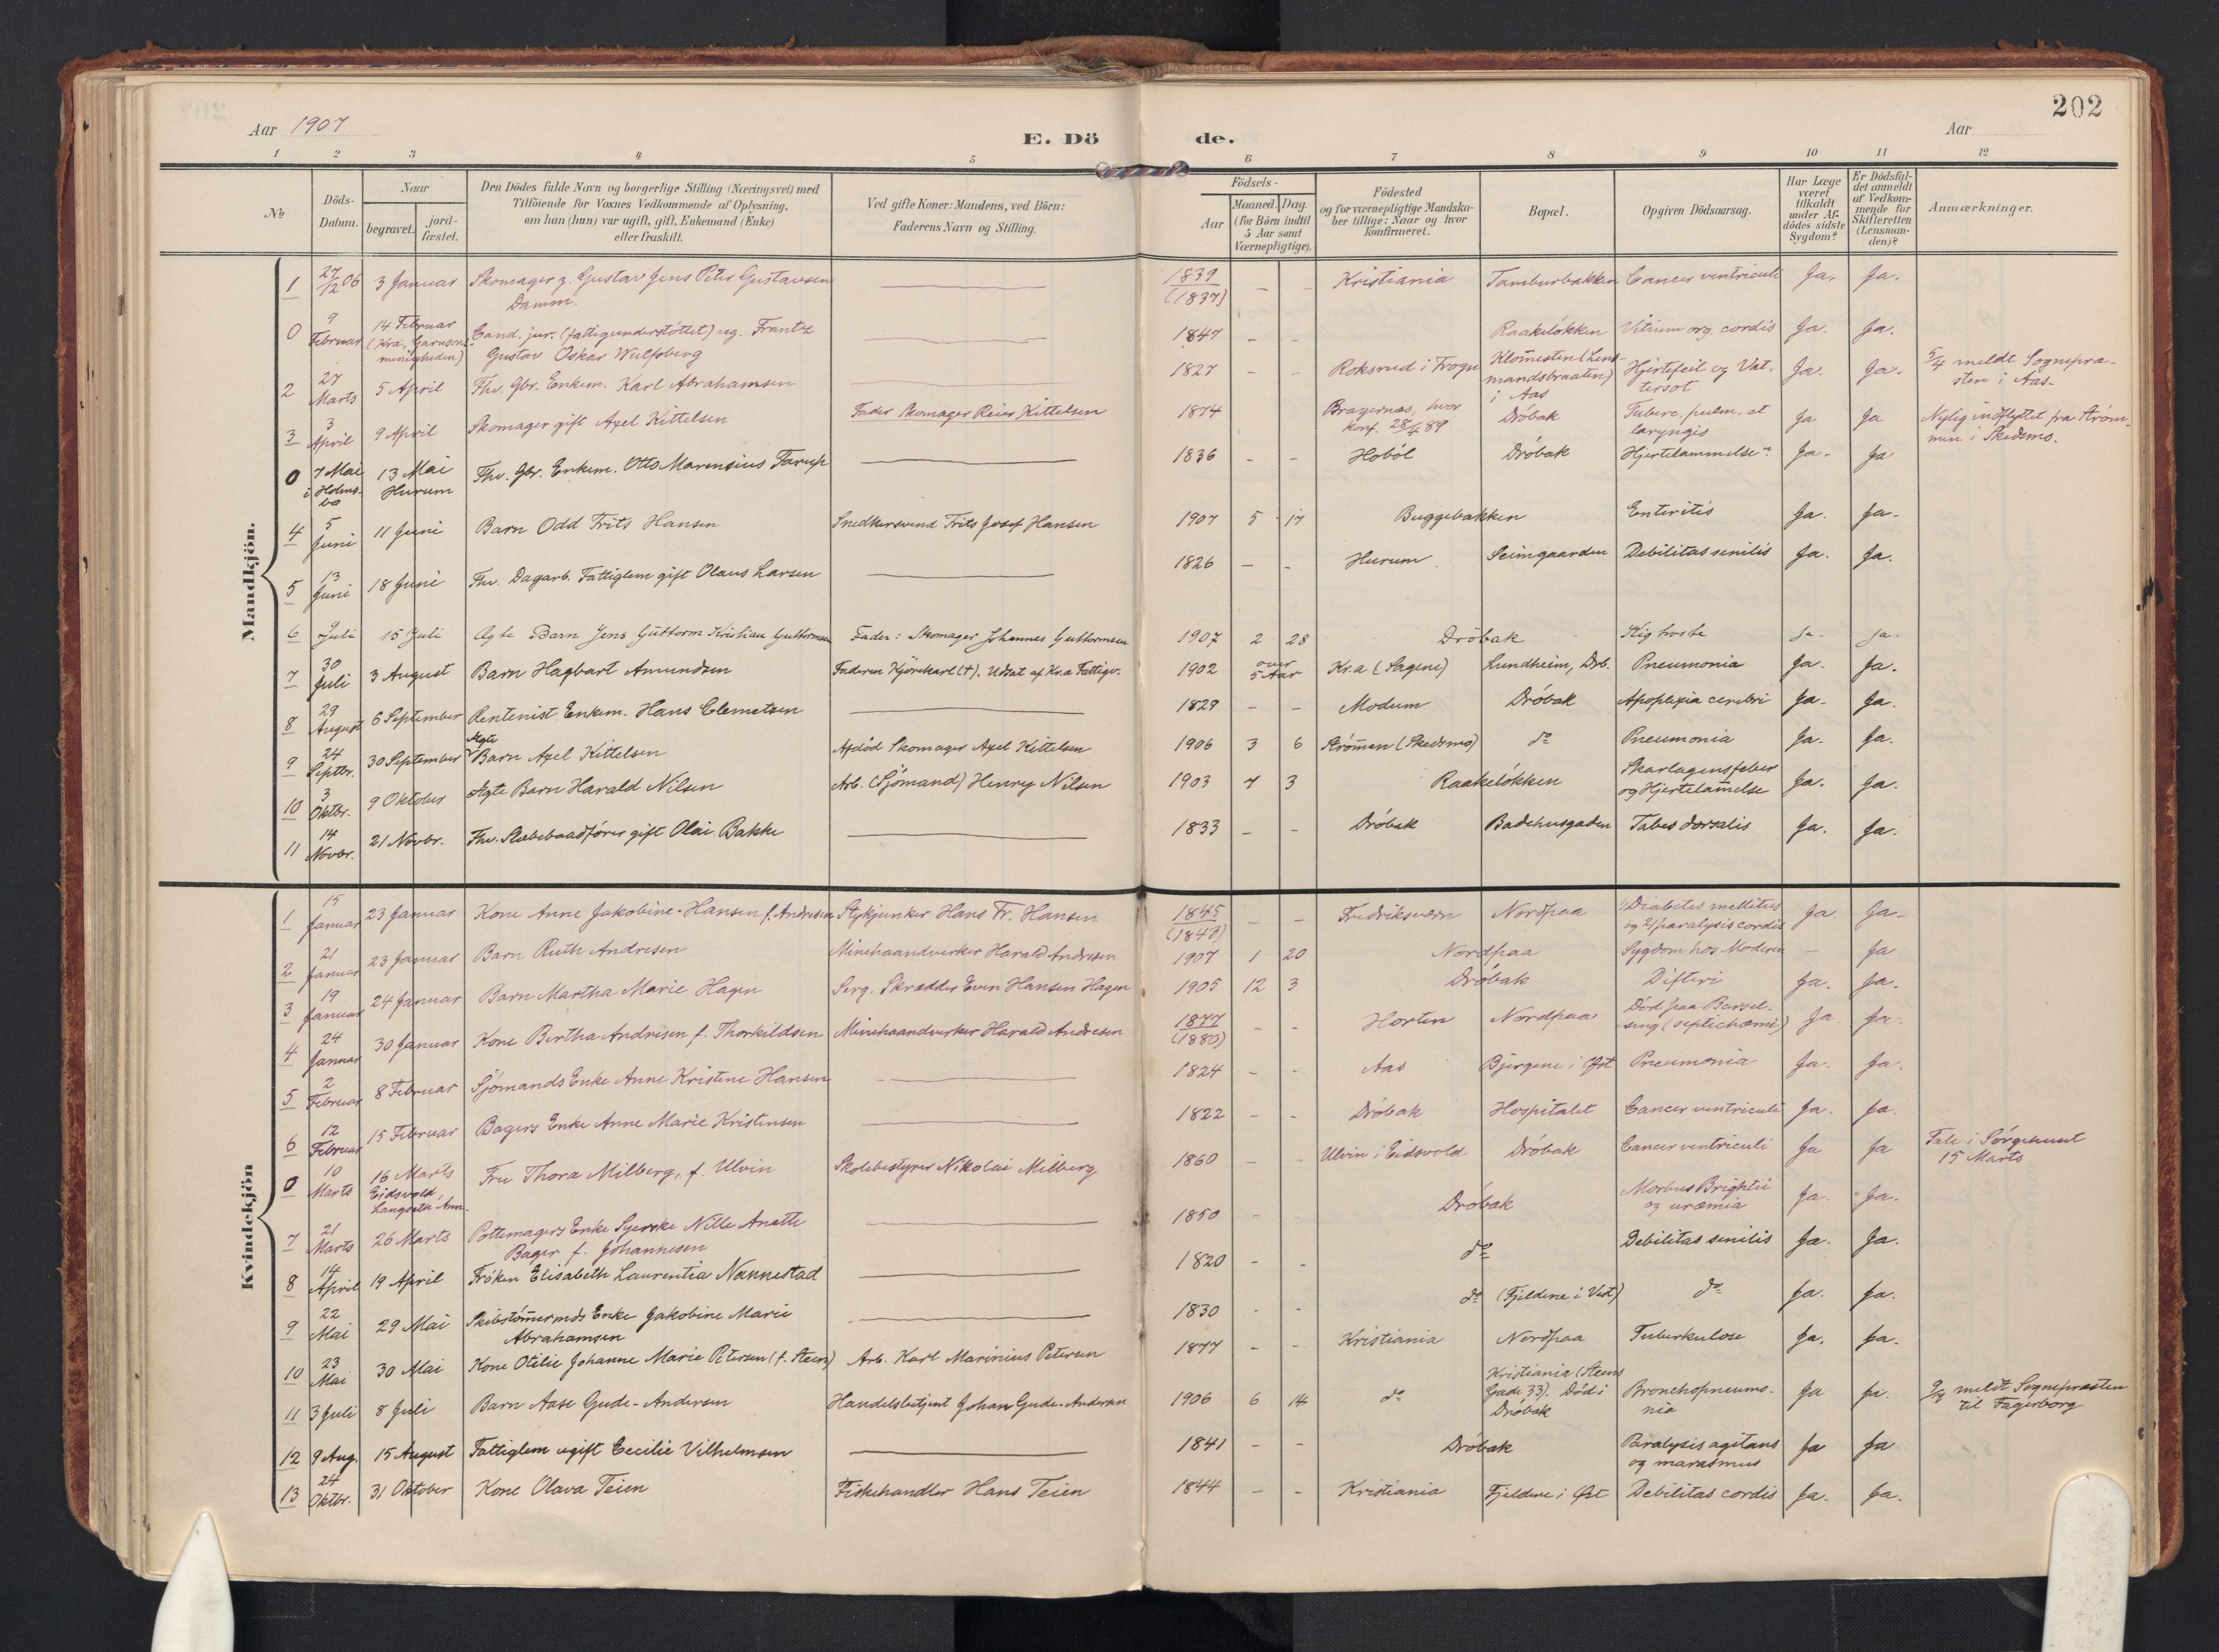 202
Aar 1907
E. Dö de.
Aar
1 2 3 4 5 6 7 8 9 10 11 12
No
Döds-Datum.
Naar
begravet.
jordfæstet.
Den Dödes fulde Navn og borgerlige Stilling (Næringsvei) med
Tilföiende for Voxnes Vedkommende af Oplysning,
om han (hun) var ugift, gift, Enkemand (Enke)
eller fraskilt.
Ved gifte Koner: Mandens, ved Börn:
Faderens Navn og Stilling.
Födsels-
Aar
Maaned. Dag.
(for Börn indtil
5 Aar samt
Værnepligtige).
Födested
og for værnepligtige Mandska-
ber tillige: Naar og hvor
konfirmeret.
Bopæl.
Opgiven Dödsaarsag.
Har Læge
været
tilkaldt
under Af-
dödes sidste
Sygdom?
Er Dödsfal-
det anmeldt
af Vedkom-
mende for
Skifteretten
(Lensman-
den)?
Anmærkninger.
Mandkjön.
1 27/12 06 3 Januar Skomager g. Gustav Jens Peter Gustavsen Damm. 1839 (1837) – – Kristiania Tamburbakken Cancer ventriculi Ja. Ja.
0 9 Februar 14 Februar (Kra., Garnisons menigheden) Cand. jur. (fattigunderstöttet) ug. Frantz Gustav Oskar Wulfsberg 1847 – – Raakelökken Vitium org. cordis Ja. Ja.
2 27 Marts 5 April Fhv. Gbr. Enkem. Karl Abrahamsen 1827 – – Roksrud i Frogn Klommesten (Lens-mandsbraaten) i Aas Hjertefeil og Vat-tersot Ja. Ja. 5/4 meldt Sognepræ-sten i Aas.
3 3 April 9 April Skomager gift Axel Kittelsen Fader Skomager Reier Kittelsen 1874 Bragernæs, hvor konf. 28/4 89 Dröbak Tuberc. pulm. et laryngis Ja Ja Nylig indflyttet fra Ström-men i Skedsmo.
0 7 Mai i Holms-bo 13 Mai Hurum Fhv. Gbr. Enkem. Otto Marensius Farup 1836 – – Hoböl Dröbak Hjertelammelse Ja. Ja
4 5 Juni 11 Juni Barn Odd Frits Hansen Snedkersvend Frits Josef Hansen 1907 5 17 Buggebakken Enteritis Ja. Ja.
5 13 Juni 18 Juni Fhv. Dagarb. Fattiglem gift Olaus Larsen 1826 – – Hurum Seimgaarden Debilitas senilis Ja. Ja.
6 9 Juli 15 Juli Ægte Barn Jens Guttorm Kristian Guttormsen Fader: Skomager Johannes Guttormsen 1907 2 28 Dröbak Kighoste Ja. Ja.
7 30 Juli 3 August Barn Hagbart Amundsen Faderen Kjörekarl (†). Udsat af Kr.a Fattigv. 1902 over 5 Aar Kr.a (Sagene) Lundheim, Drb. Pneumonia Ja. Ja.
8 29 August 6 September Rentenist Enkem. Hans Clemetsen 1829 – – Modum Dröbak Apoplexia cerebri Ja. Ja.
9 24 Septbr. 30 September Ægte Barn Axel Kittelsen Afdöd Skomager Axel Kittelsen 1906 3 6 Strömmen (Skedsmo) do Pneumonia Ja. Ja.
10 3 Oktbr. 9 Oktober Ægte Barn Harald Nilsen Arb. (Sjömand) Henry Nilsen 1903 7 3 Raakelökken Skarlagensfeber og Hjertelammelse Ja. Ja.
11 14 Novbr. 21 Novbr. Fhv. Slæbebaadförer gift Olai Bakke 1833 – – Dröbak Badehusgaden Tabes dorsalis Ja. Ja.
Kvindekjön
1 15 Januar 23 Januar Kone Anne Jakobine Hansen f. Andresen Stykjunker Hans Fr. Hansen 1845 (1848) – – Fredriksværn Nordpaa 1) Diabetes mellitus og 2) paralysis cordis Ja. Ja.
2 21 Januar 23 Januar Barn Ruth Andresen Minehaandverker Harald Andresen 1907 1 20 Nordpaa Sygdom hos Moderen – Ja
3 19 Januar 24 Januar Barn Martha Marie Hagen Serg. Skrædder Even Hansen Hagen 1905 12 3 Dröbak Difteri Ja. Ja.
4 24 Januar 30 Januar Kone Bertha Andresen f. Thorkildsen Minehaandverker Harald Andresen 1877 (1880) – – Horten Nordpaa Död paa Barsel-seng (septichæmi) Ja. Ja.
5 2 Februar 8 Februar Sjömands Enke Anne Kristine Hansen 1824 – – Aas Bjergene i Öst Pneumonia Ja. Ja.
6 12 Februar 15 Februar Bagers Enke Anne Marie Kristensen 1822 – – Dröbak Hospitalet Cancer ventriculi Ja. Ja.
0 10 Marts 16 Marts Eidsvold, Langseth Ann. Fru Thora Milberg, f. Ulvin Skolebestyrer Nikolai Milberg 1860 – – Ulvin i Eidsvold Dröbak Cancer ventriculi Ja Ja Tale i Sörgehuset 15 Marts
7 21 Marts 26 Marts Pottemagers Enke Syerske Nille Anette Bager f. Johannesen 1850 – – Dröbak Morbus Brightii og uræmia Ja. Ja.
8 14 April 19 April Fröken Elisabeth Laurentia Nannestad 1820 – – do Debilitas senilis Ja. Ja.
9 22 Mai 29 Mai Skibstömmermds Enke Jakobine Marie Abrahamsen 1830 – – do (Fjeldene i Vest) do Ja. Ja.
10 23 Mai 30 Mai Kone Otilie Johanne Marie Petersen (f. Steen) Arb. Karl Marinius Petersen 1877 Kristiania Nordpaa Tuberkulose Ja. Ja.
11 3 Juli 8 Juli Barn Aase Gude-Andersen Handelsbetjent Johan Gude-Andersen 1906 6 14 do Kristiania (Steens Gade 33). Död i Dröbak Bronchopneumo-nia Ja Ja. 9/7 meldt Sognepræsten til Fagerborg
12 9 Aug. 15 August Fattiglem ugift Cecilie Vilhelmsen 1841 – – Dröbak Paralysis agitans og marasmus Ja Ja
13 24 Oktbr. 31 Oktober Kone Olava Teien Fiskehandler Hans Teien 1844 – – Kristiania Fjeldene i Öst Debilitas cordis Ja. Ja.